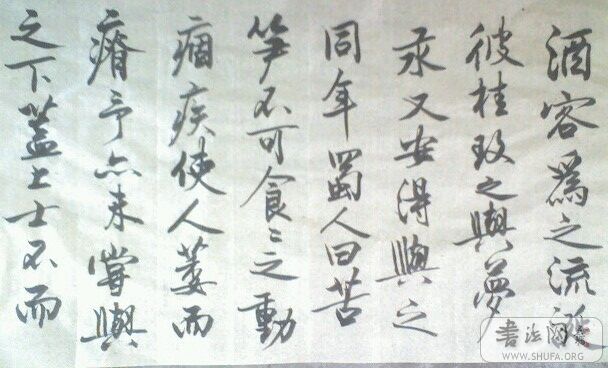 酒客爲之流涎
彼桂玫之與夢
汞又安得與之
同年蜀人曰苦
笋不可食〻之動
痼疾使人萎而
瘠予亦未嘗與
之下蓋上士不而
书法网
WWW.SHUFA.ORG